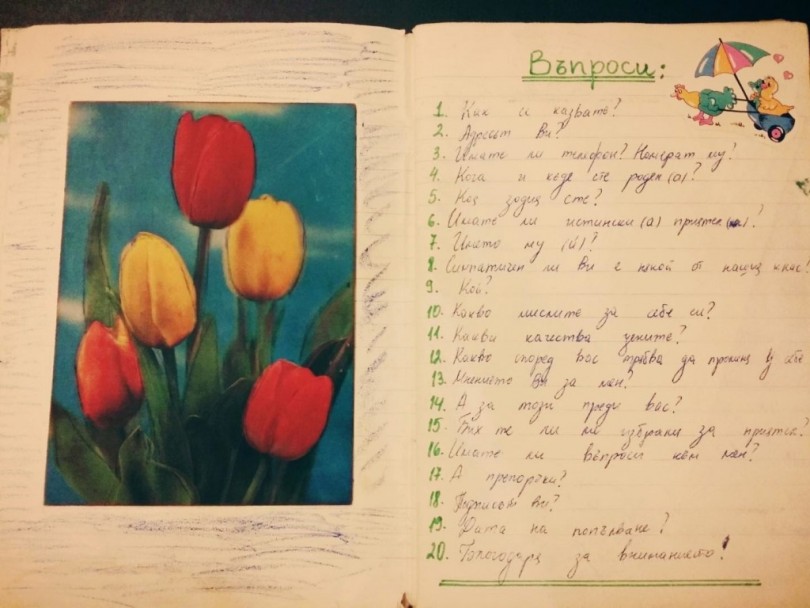 Въпроси:
1. Как се казвате?
2. Адресът Ви?
3. Имате ли телефон? Номерът му?
4. Кога и къде сте роден (а)?
5. Коя зодия сте?
6. Имате ли истински (а) приятел (ка)?
7. Името му (ѝ)?
8. Симпатичен ли Ви е някой от нашия клас?
9. Кой?
10. Какво мислите за себе си?
11. Какви качества цените?
12. Какво според вас трябва да променя у себе
13. Мнението Ви за мен?
14. А за този преди вас?
15. Бихте ли ме избрали за приятел?
16. Имате ли въпроси към мен?
17. А препоръки?
18. Подписът ви?
19. Дата на попълване?
20. Благодаря за вниманието!